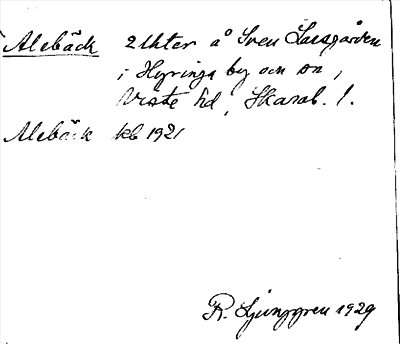 Alebäck 2 lhter å Sven Larsgården
i Hyringa by och sn,
Viste hd, Skarab. l.
Alebäck kb 1921
R. Ljunggren 1929